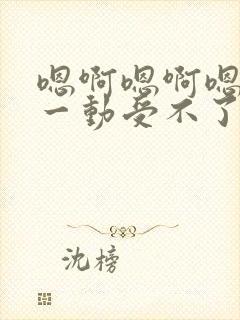 嗯啊嗯啊嗯
一動受不了
沈榜